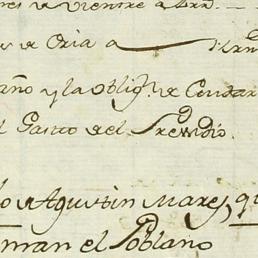 res de Vientre a
de Cria a
año y la Oblig.n de Cuidar
el Gasto del Presidio.
o Agustin Mares, qu
man el Poblano